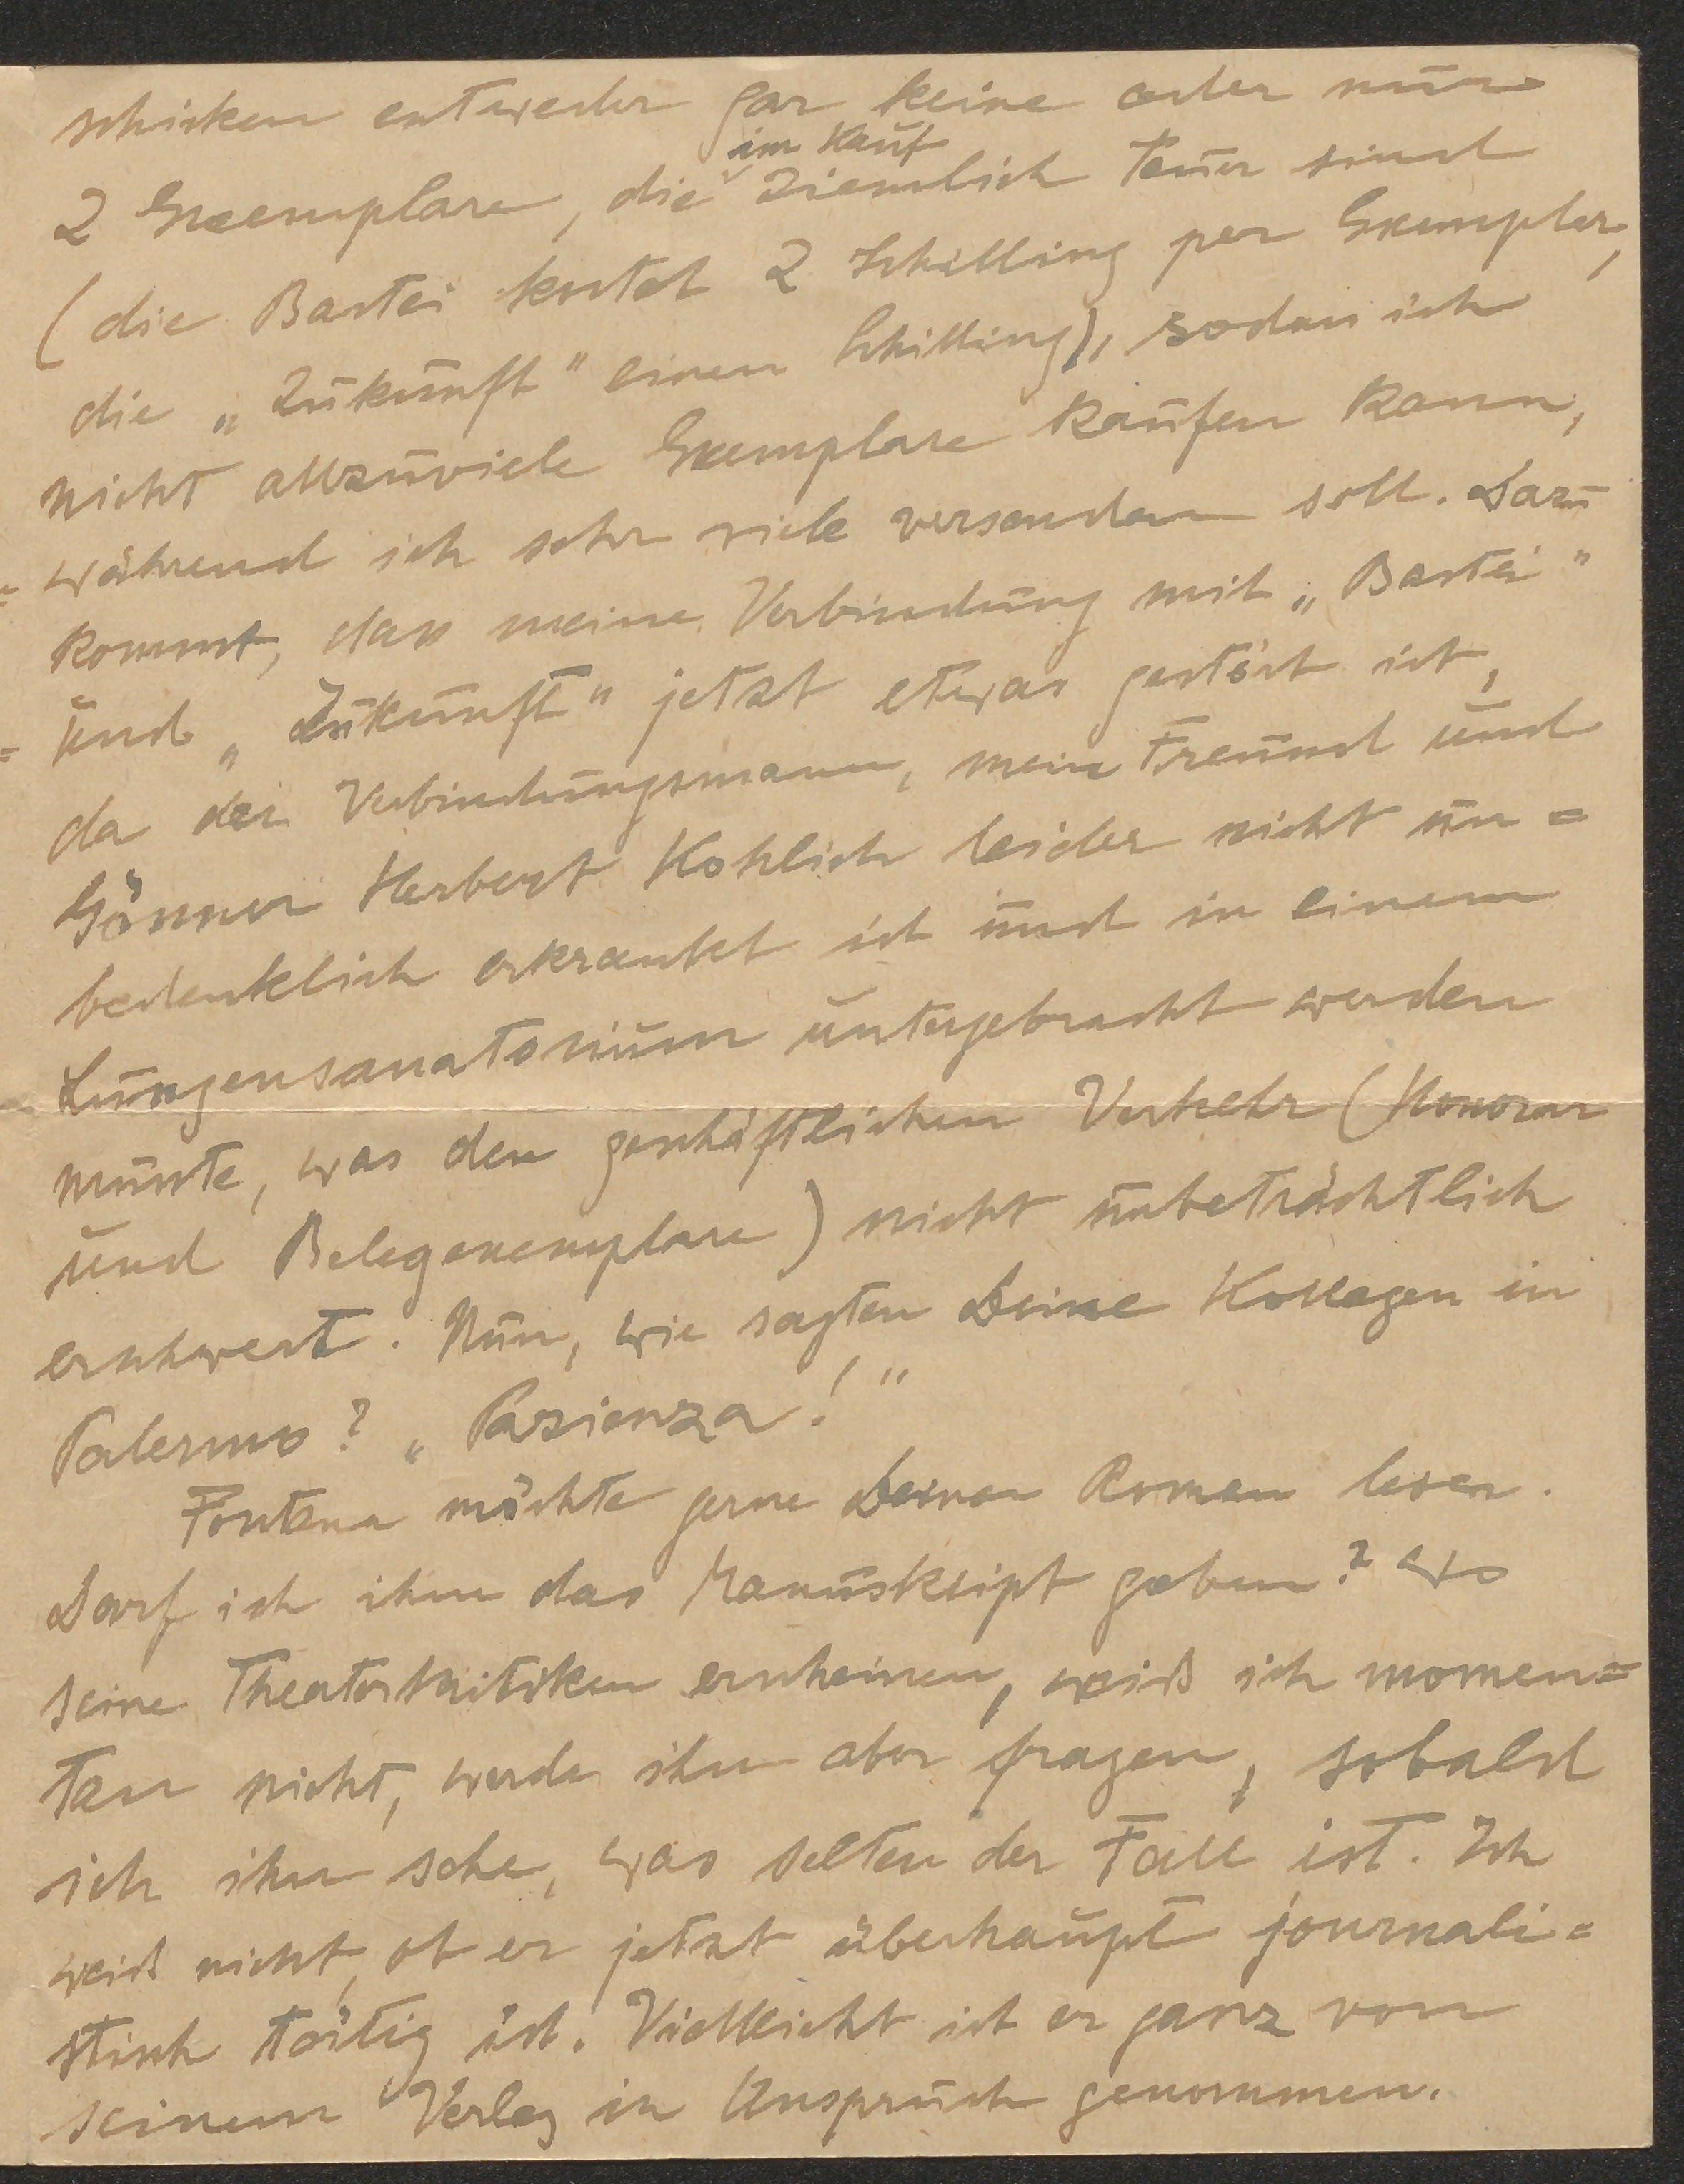 schicken entweder gar keine oder nur
im Kauf
2 Exemplare, die ziemlich teuer sind
(die Bastei kostet 2 Schilling per Exemplar,
die „Zukunft" einen Schilling), sodass ich
nicht allzuviele Exemplare kaufen kann,
während ich sehr viele versenden soll. Dazu
kommt, dass meine Verbindung mit „Bastei"
und „Zukunft" jetzt etwas gestört ist,
da der Verbindungsmann, mein Freund und
Gönner Herbert Kohlich leider nicht un=
bedenklich erkrankt ist und in einem
Lungensanatorium untergebracht werden
musste, was den geschäftlichen Verkehr (Honorar
und Belegexemplare) nicht unbeträchtlich
erschwert. Nun, wie sagten Deine Kollegen in
Palermo? „Pazienza!"
Fontana möchte gerne Deinen Roman lesen.
Darf ich ihm das Manuskript geben? Wo
seine Theaterkritiken erscheinen, weiß ich momen=
tan nicht, werde ihn aber fragen, sobald
ich ihn sehe, was selten der Fall ist. Ich
weiß nicht, ob er jetzt überhaupt journali=
stisch tätig ist. Vielleicht ist er ganz von
seinem Verlag in Anspruch genommen.